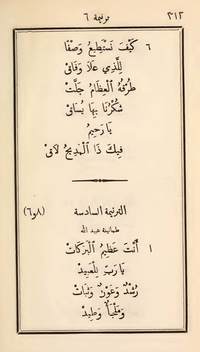 ترنيمة ٦
٣١٢
٦ كَيْفَ نَسْتَطِيعُ وَصْفَا
لِلَّذِي عَلَا وَفَاقَ
طُرْقُهُ الْعِظَامُ جَلَّتْ
شُكْرُنَا بِهَا يُسَاقَ
يَا رَحِيمُ
فِيكَ ذَا الْمَدِيحُ لَاقَ
الترنيمة السادسة (٨و٦)
طمانينة عبيد الله
١ أَنْتَ عَظِيمُ الْبَرَكَاتْ
يَا رَبِّ لِلْعَبِيدْ
رُشْدٌ وَعَوْنٌ وَثَبَاتْ
وَمَلْجَأٌ وَطِيدْ